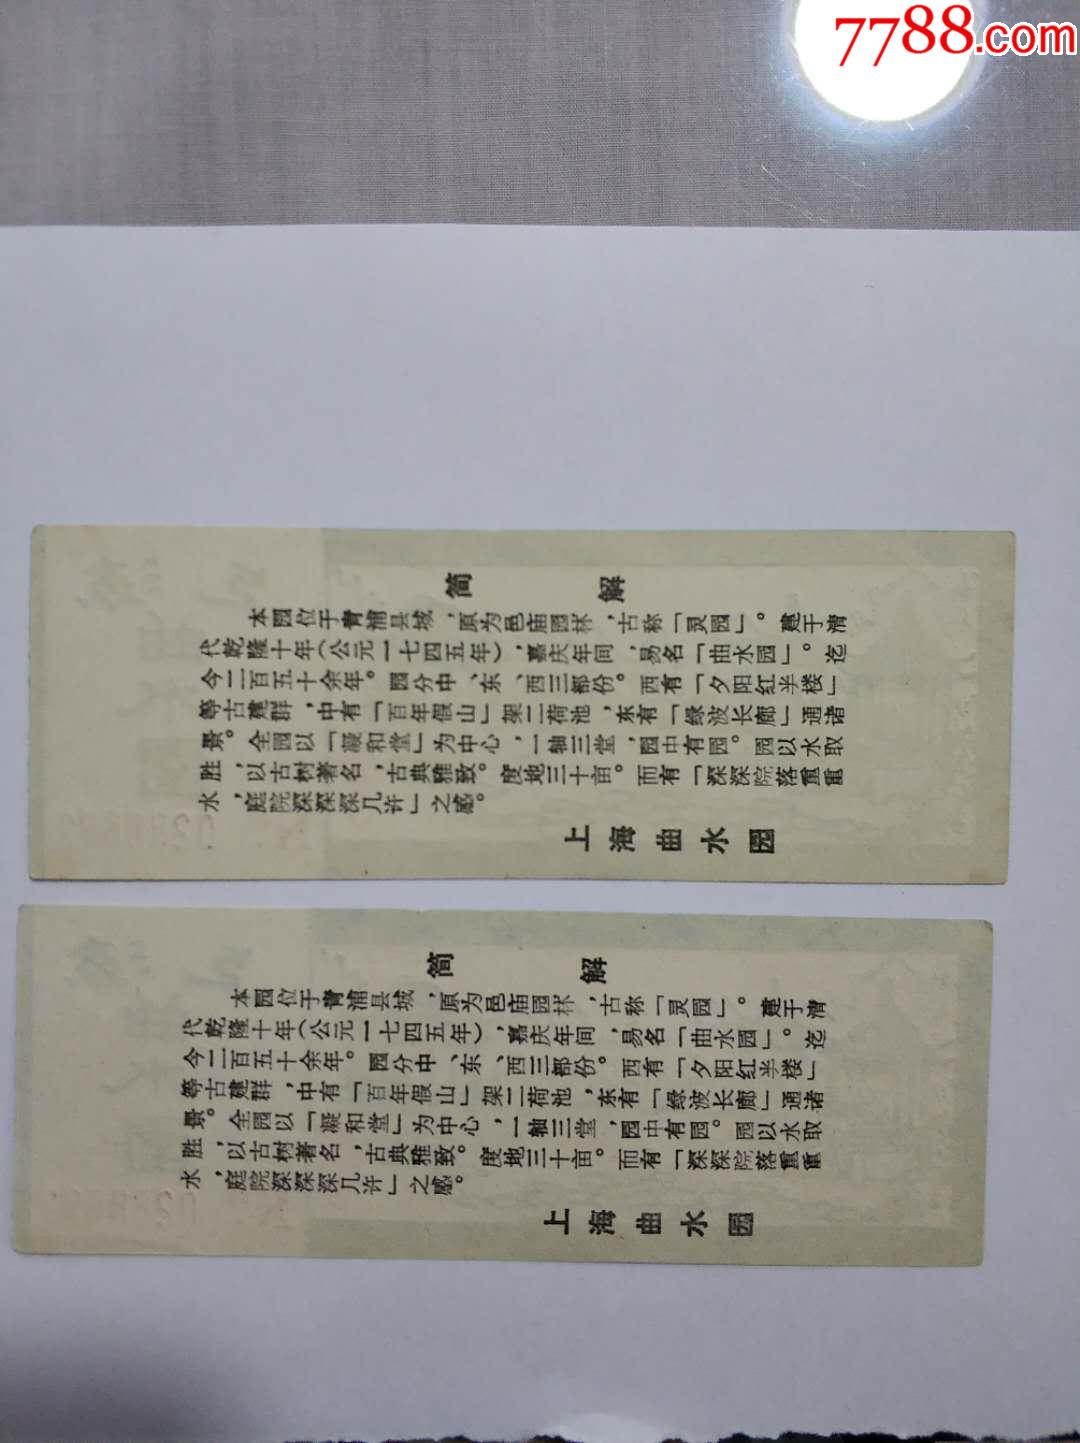 7788.com
简解
本园位于青浦县城，原为邑庙园林，古称「灵园」。建于清
代乾隆十年（公元一七四五年），嘉庆年间，易名「曲水园」。迄
今二百五十余年。园分中、东、西三部份。西有「夕阳红半楼」
等古建群，中有「百年假山」架二荷池，东有「绿波长廊」通诸
景。全园以「凝和堂」为中心，一轴三堂，园中有园。园以水取
胜，以古树著名，古典雅致。度地三十亩。而有「深深院落重重
水，庭院深深深几许」之感。
上海曲水园
简解
本园位于青浦县城，原为邑庙园林，古称「灵园」。建于清
代乾隆十年（公元一七四五年），嘉庆年间，易名「曲水园」。迄
今二百五十余年。园分中、东、西三部份。西有「夕阳红半楼」
等古建群，中有「百年假山」架二荷池，东有「绿波长廊」通诸
景。全园以「凝和堂」为中心，一轴三堂，园中有园。园以水取
胜，以古树著名，古典雅致。度地三十亩。而有「深深院落重重
水，庭院深深深几许」之感。
上海曲水园